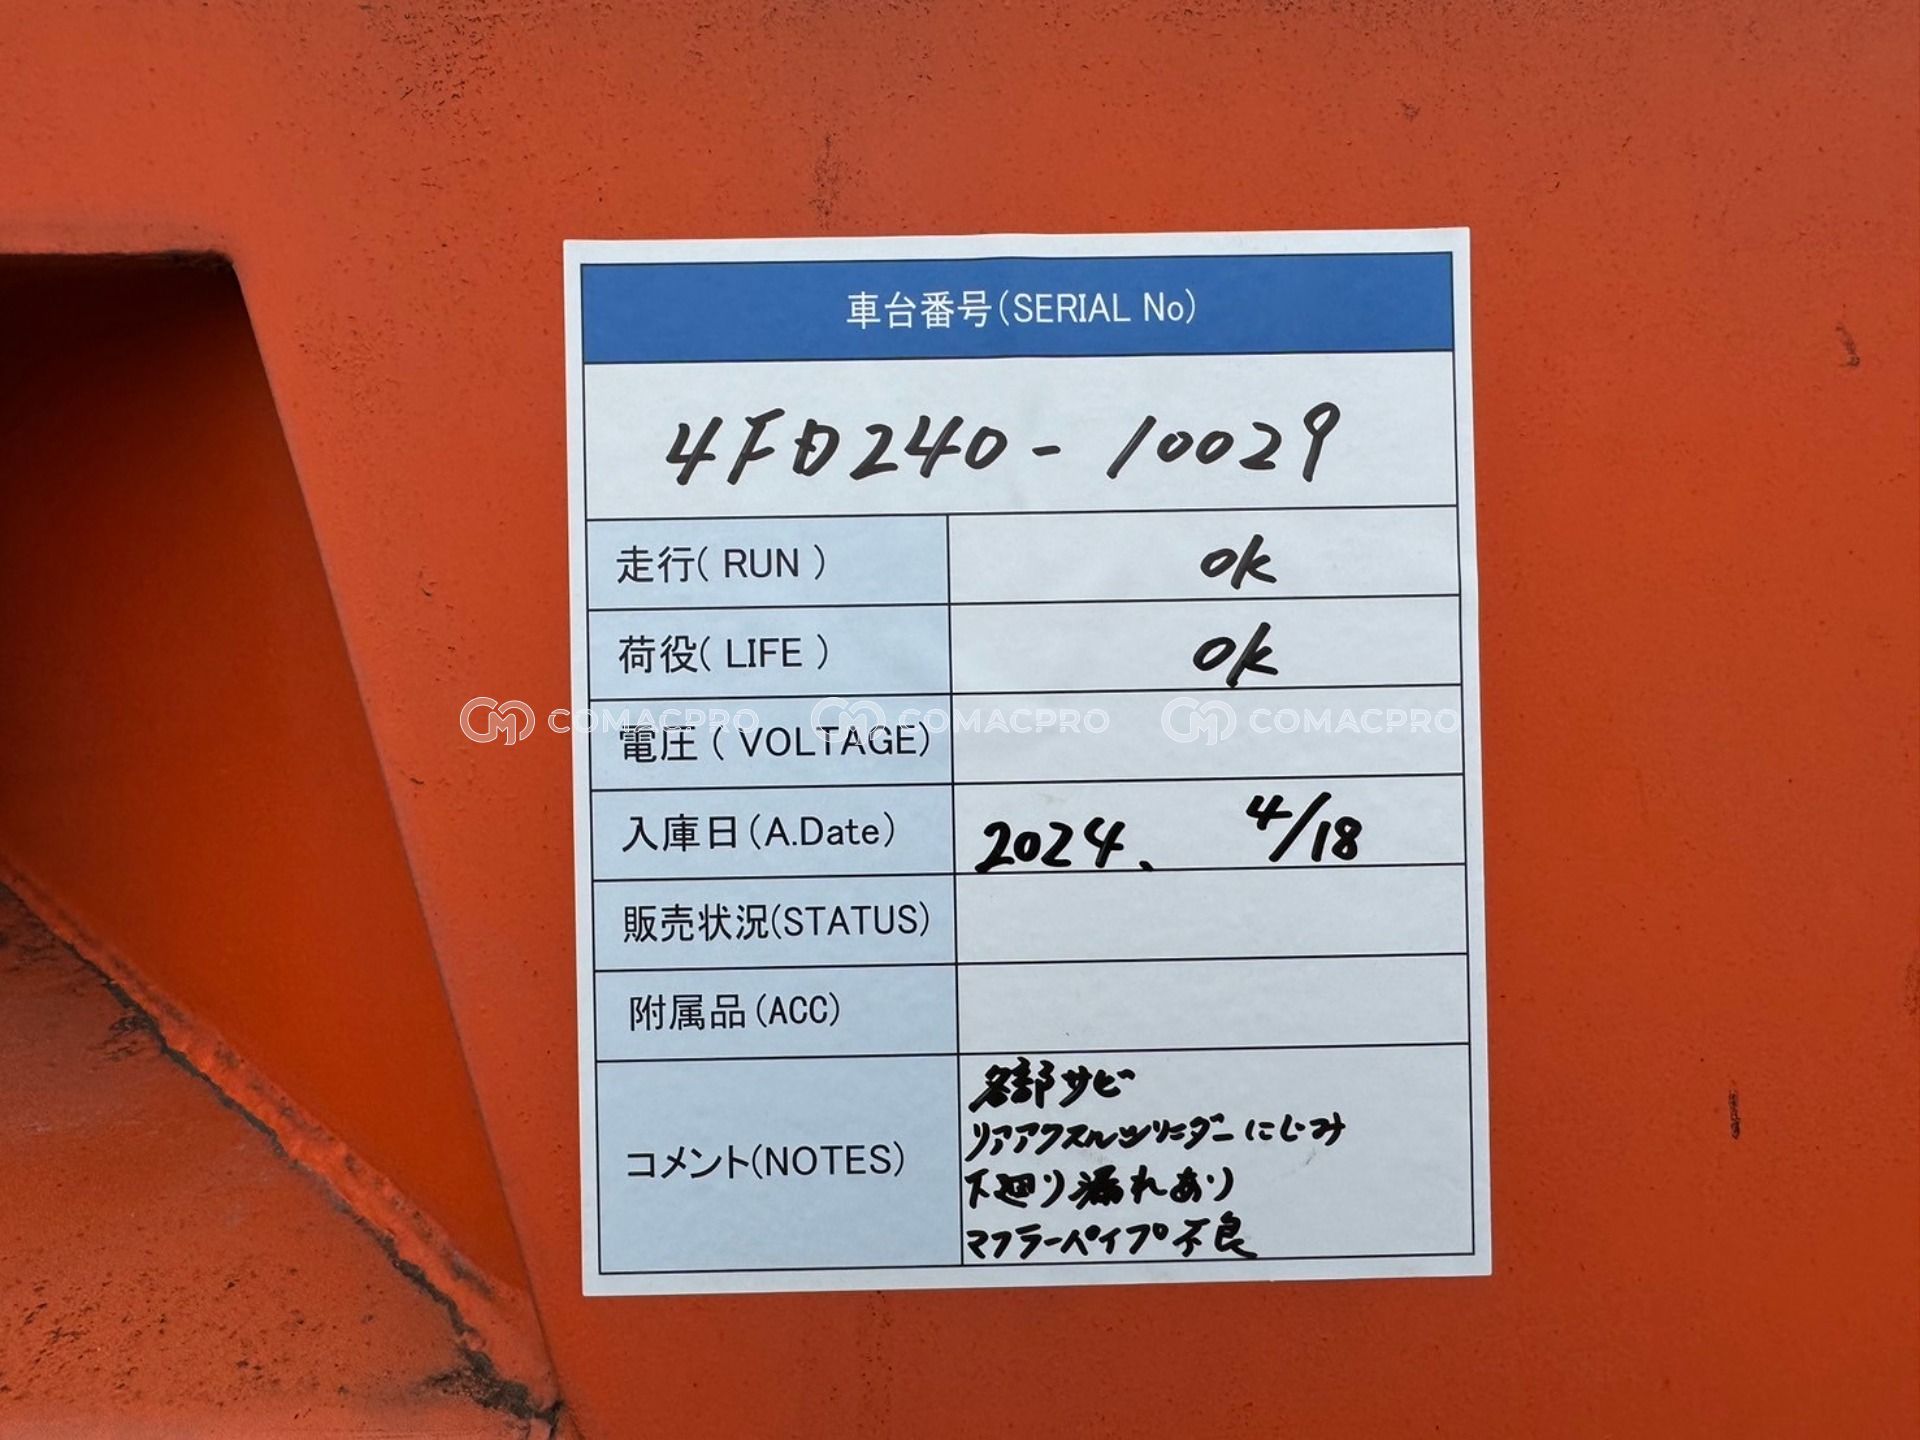 車台番号(SERIAL No)
4FD240-10029
走行( RUN ) ok
荷役( LIFE ) ok
COMACPRO COMACPRO COMACPRO
電圧( VOLTAGE)
入庫日(A.Date) 2024、 4/18
販売状況(STATUS)
附属品(ACC)
コメント(NOTES)
各部サビ
リアアクスルシリンダーにじみ
下廻り漏れあり
マフラーパイプ不良